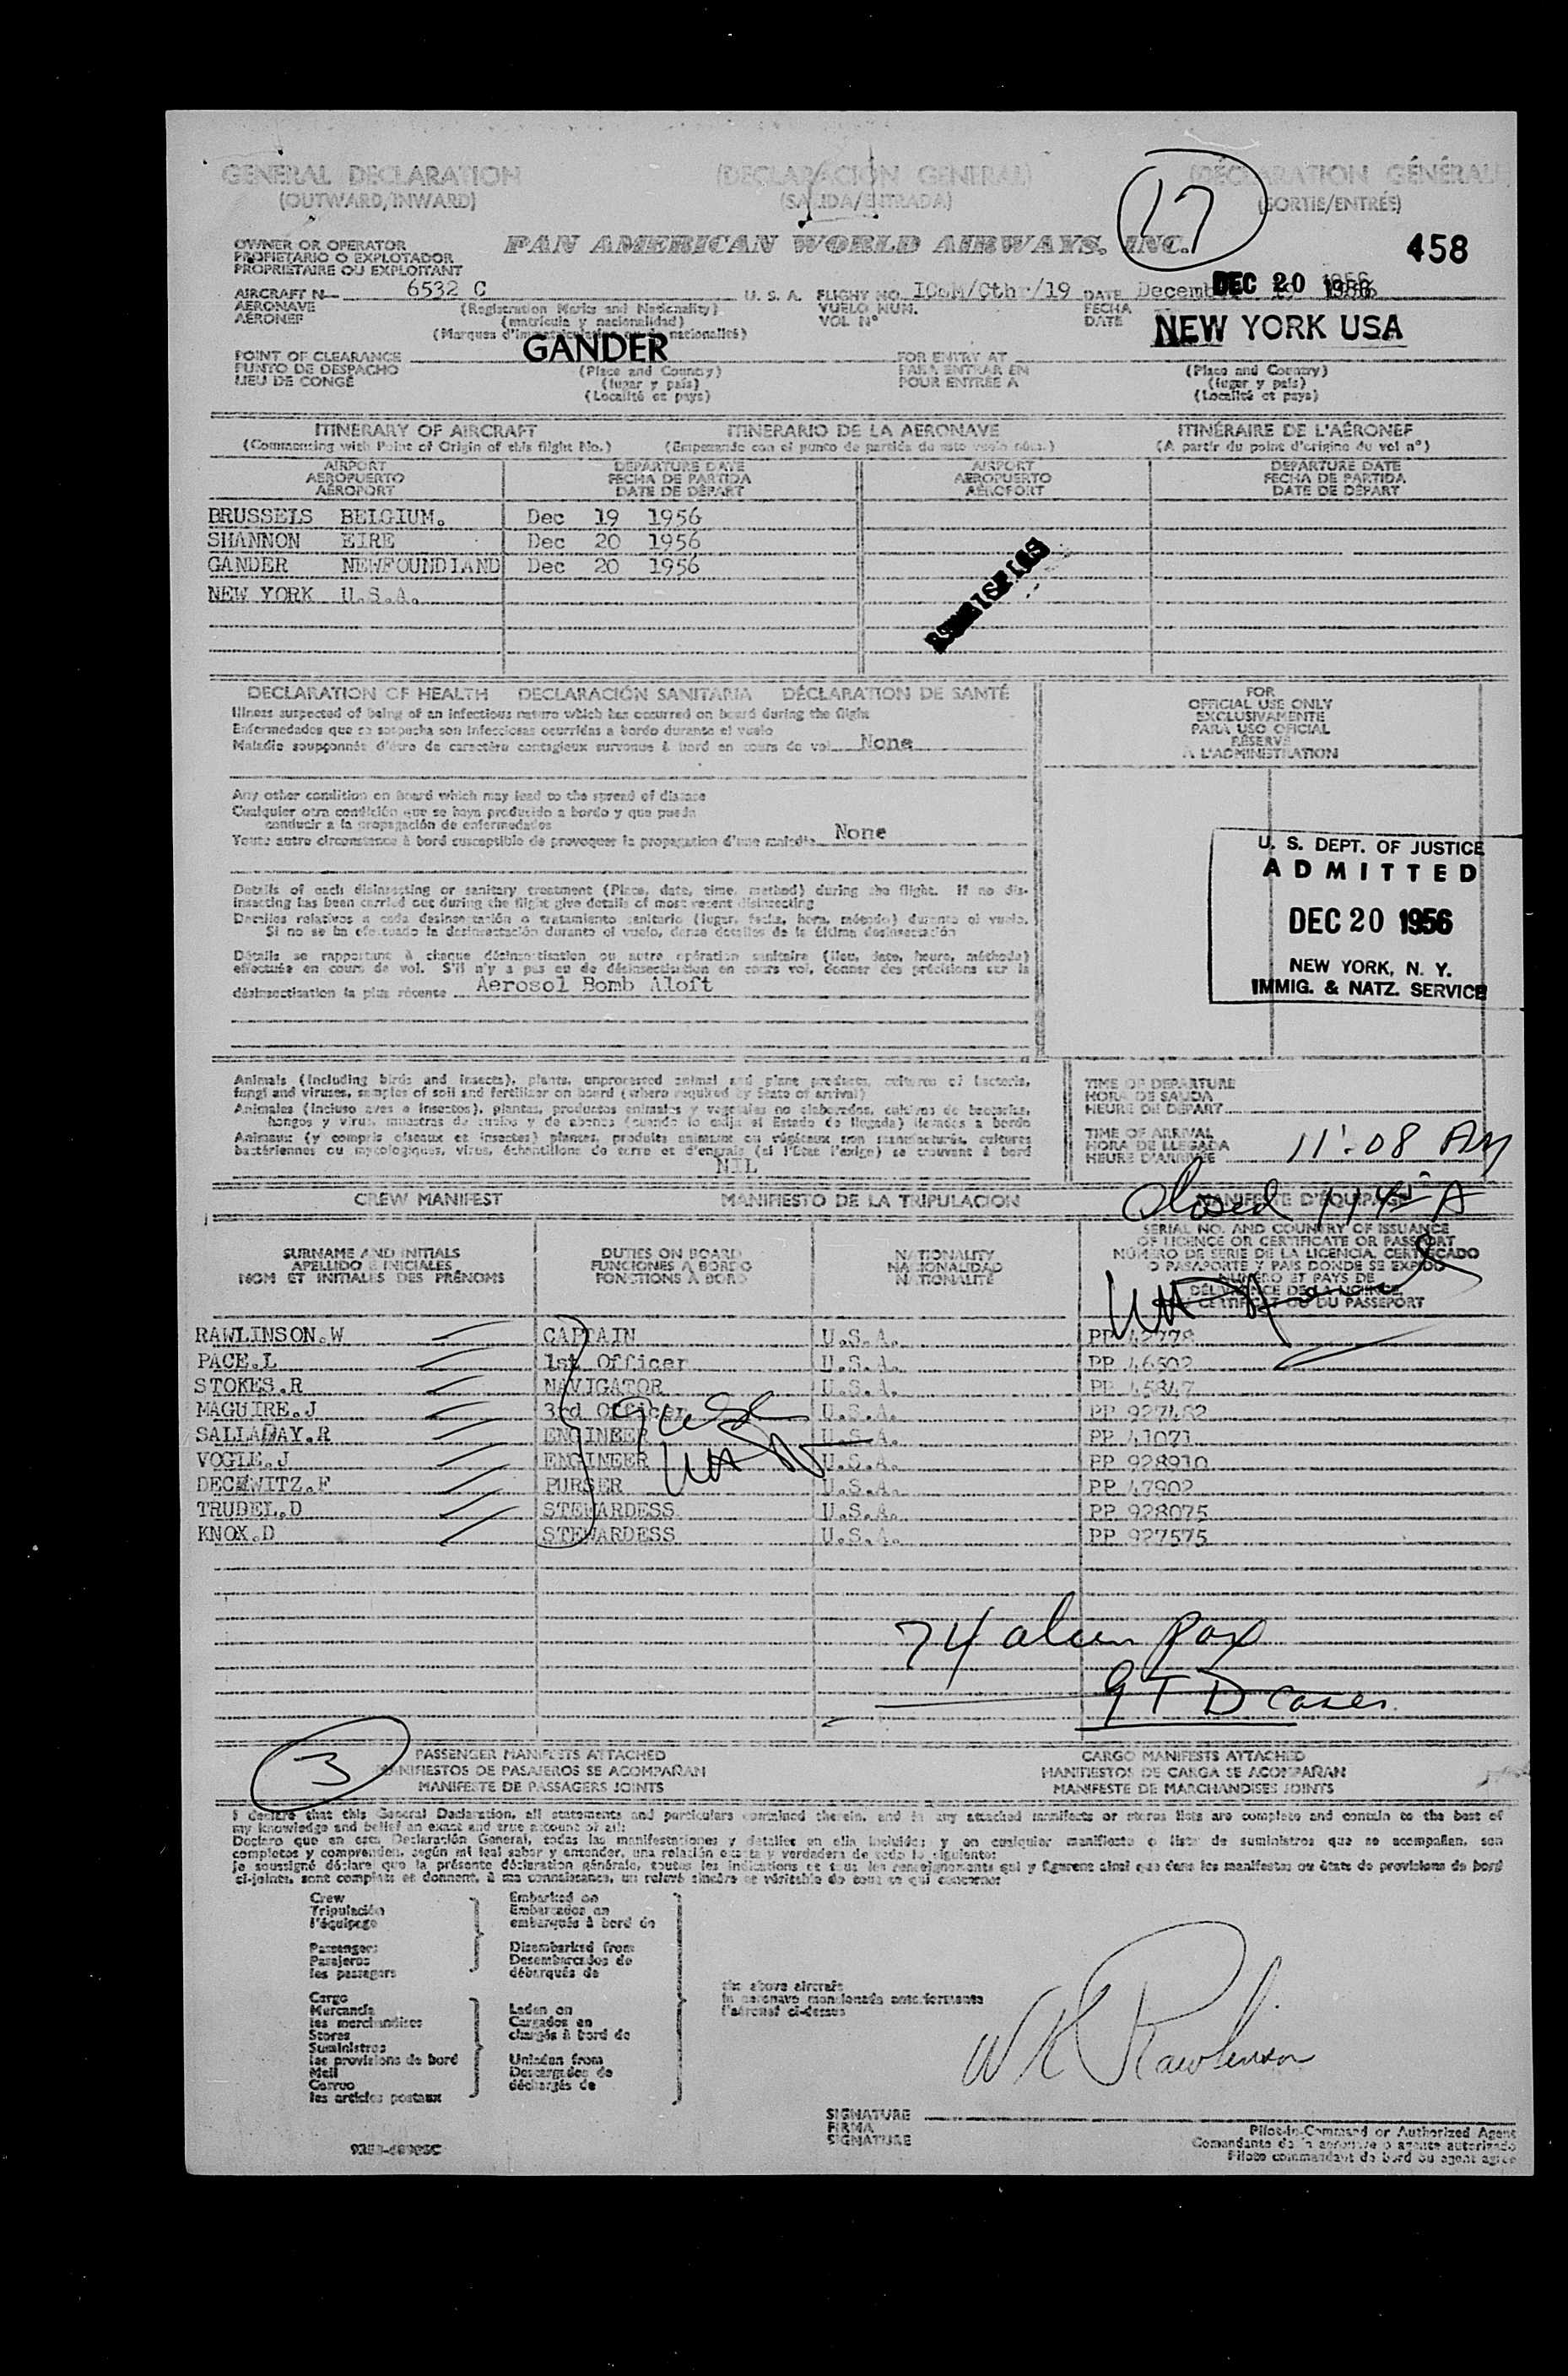 GENERAL DECLARATION (DECLARACIÓN GENERAL) (DÉCLARATION GÉNÉRALE
(OUTWARD/INWARD) (SALIDA/ENTRADA) (SORTIE/ENTRÉE)
17
OWNER OR OPERATOR
PROPIETARIO O EXPLOTADOR
PROPRIÉTAIRE OU EXPLOITANT
PAN AMERICAN WORLD AIRWAYS, INC.
458
AIRCRAFT N— 6532 C U. S. A. FLIGHT NO. /19 DATE
AERONAVE (Registration Marks and Nationality) VUELO NUM. FECHA
AÉRONEF (matrícula y nacionalidad) VOL N° DATE
DEC 20 1956
NEW YORK USA
GANDER
POINT OF CLEARANCE FOR ENTRY AT
PUNTO DE DESPACHO (Place and Country) PARA ENTRAR EN (Place and Country)
LIEU DE CONGÉ (lugar y país) POUR ENTRÉE A (lugar y país)
(Localité et pays) (Localité et pays)
ITINERARY OF AIRCRAFT ITINERARIO DE LA AERONAVE ITINÉRAIRE DE L'AÉRONEF
(Commencing with Point of Origin of this flight No.) (Empezando con el punto de partida de este vuelo núm.) (A partir du point d'origine du vol n°)
AIRPORT DEPARTURE DATE AIRPORT DEPARTURE DATE
AEROPUERTO FECHA DE PARTIDA AEROPUERTO FECHA DE PARTIDA
AÉROPORT DATE DE DÉPART AÉROPORT DATE DE DÉPART
BRUSSELS BELGIUM. Dec 19 1956
SHANNON EIRE Dec 20 1956
GANDER NEWFOUNDLAND Dec 20 1956
NEW YORK U.S.A.
DECLARATION OF HEALTH DECLARACIÓN SANITARIA DÉCLARATION DE SANTÉ
Illness suspected of being of an infectious nature which has occurred on board during the flight
Enfermedades que se sospecha son infecciosas ocurridas a bordo durante el vuelo
Maladie soupçonnée d'être de caractère contagieux survenue à bord en cours de vol None
Any other condition on board which may lead to the spread of disease
Cualquier otra condición que se haya producido a bordo y que pueda
conducir a la propagación de enfermedades
Toute autre circonstance à bord susceptible de provoquer la propagation d'une maladie None
Details of each disinsecting or sanitary treatment (Place, date, time, method) during the flight. If no dis-
insecting has been carried out during the flight give details of most recent disinsecting
Detalles relativos a cada desinsectación o tratamiento sanitario (lugar, fecha, hora, método) durante el vuelo.
Si no se ha efectuado la desinsectación durante el vuelo, dense detalles de la última desinsectación
Détails se rapportant à chaque désinsectisation ou autre opération sanitaire (lieu, date, heure, méthode)
effectuée en cours de vol. S'il n'y a pas eu de désinsectisation en cours vol, donner des précisions sur la
désinsectisation la plus récente Aerosol Bomb Aloft
FOR
OFFICIAL USE ONLY
EXCLUSIVAMENTE
PARA USO OFICIAL
RÉSERVÉ
A L'ADMINISTRATION
U. S. DEPT. OF JUSTICE
ADMITTED
DEC 20 1956
NEW YORK, N. Y.
IMMIG. & NATZ. SERVICE
Animals (including birds and insects), plants, unprocessed animal and plant products, cultures of bacteria,
fungi and viruses, samples of soil and fertilizer on board (where required by State of arrival)
Animales (incluso aves e insectos), plantas, productos animales y vegetales no elaborados, cultivos de bacterias,
hongos y virus, muestras de suelos y de abonos (cuando lo exija el Estado de llegada) llevados a bordo
Animaux (y compris oiseaux et insectes) plantes, produits animaux ou végétaux non manufacturés, cultures
bactériennes ou mycologiques, virus, échantillons de terre et d'engrais (si l'Etat l'exige) se trouvant à bord
NIL
TIME OF DEPARTURE
HORA DE SALIDA
HEURE DE DÉPART
TIME OF ARRIVAL
HORA DE LLEGADA
HEURE D'ARRIVÉE 11:08 AM
Closed
CREW MANIFEST MANIFIESTO DE LA TRIPULACION MANIFESTE D'ÉQUIPAGE
SURNAME AND INITIALS DUTIES ON BOARD NATIONALITY
APELLIDO E INICIALES FUNCIONES A BORDO NACIONALIDAD
NOM ET INITIALES DES PRÉNOMS FONCTIONS À BORD NATIONALITÉ
SERIAL NO. AND COUNTRY OF ISSUANCE
OF LICENCE OR CERTIFICATE OR PASSPORT
NÚMERO DE SERIE DE LA LICENCIA, CERTIFICADO
O PASAPORTE Y PAIS DONDE SE EXPIDO
NUMÉRO ET PAYS DE
DÉLIVRANCE DE LA LICENCE,
CERTIFICAT OU DU PASSEPORT
RAWLINSON.W CAPTAIN U.S.A. PP 42778
PACE.L 1st Officer U.S.A. PP 46502
STOKES.R NAVIGATOR U.S.A. PP 45847
MAGUIRE.J 3rd Officer U.S.A. PP 927482
SALLADAY.R ENGINEER U.S.A. PP 41071
VOGLE.J ENGINEER U.S.A. PP 928910
DECEWITZ.F PURSER U.S.A. PP 47902
TRUDEL.D STEWARDESS U.S.A. PP 928075
KNOX.D STEWARDESS U.S.A. PP 927575
74 alien pax
9 T D cases.
3
PASSENGER MANIFESTS ATTACHED CARGO MANIFESTS ATTACHED
MANIFIESTOS DE PASAJEROS SE ACOMPAÑAN MANIFIESTOS DE CARGA SE ACOMPAÑAN
MANIFESTE DE PASSAGERS JOINTS MANIFESTE DE MARCHANDISES JOINTS
I declare that this General Declaration, all statements and particulars contained therein, and in any attached manifests or stores lists are complete and contain to the best of
my knowledge and belief an exact and true account of all:
Declaro que en esta Declaración General, todas las manifestaciones y detalles en ella incluidos y en cualquier manifiesto o lista de suministros que se acompañan, son
completos y comprenden, según mi leal saber y entender, una relación exacta y verdadera de todo lo siguiente:
Je soussigné déclare que la présente déclaration générale, toutes les indications et tous les renseignements qui y figurent ainsi que dans les manifestes ou états de provisions de bord
ci-joints, sont complets et donnent, à ma connaissance, un relevé sincère et véritable de tout ce qui concerne:
Crew Embarked on
Tripulación Embarcados en
l'équipage embarqués à bord de
Passengers Disembarked from
Pasajeros Desembarcados de
les passagers débarqués de
the above aircraft
la aeronave mencionada anteriormente
l'aéronef ci-dessus
Cargo
Mercancía Laden on
les marchandises Cargados en
Stores chargés à bord de
Suministros
les provisions de bord Unladen from
Mail Descargados de
Correo déchargés de
les articles postaux
W R Rawlinson
SIGNATURE
FIRMA
SIGNATURE
Pilot-in-Command or Authorized Agent
Comandante de la aeronave o agente autorizado
Pilote commandant de bord ou agent agréé